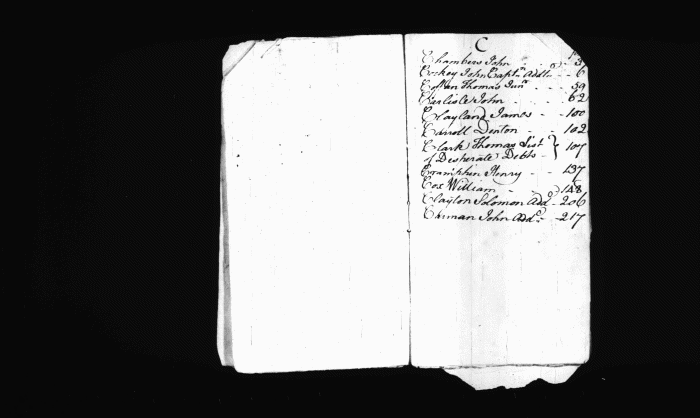 C
Chambers John - - 3
Cockey John Capt.n Add.l - - 6
Thomas Jun.r - - - 59
Carlisle John - - - 62
Clayland James - - 100
Carroll Denton - - 102
Clark Thomas List } 107
of Desperate Debts
Cramphin Henry - - 137
Cox William - - 148
Clayton Solomon Add.l - 206
Chunman John Add.l - 217